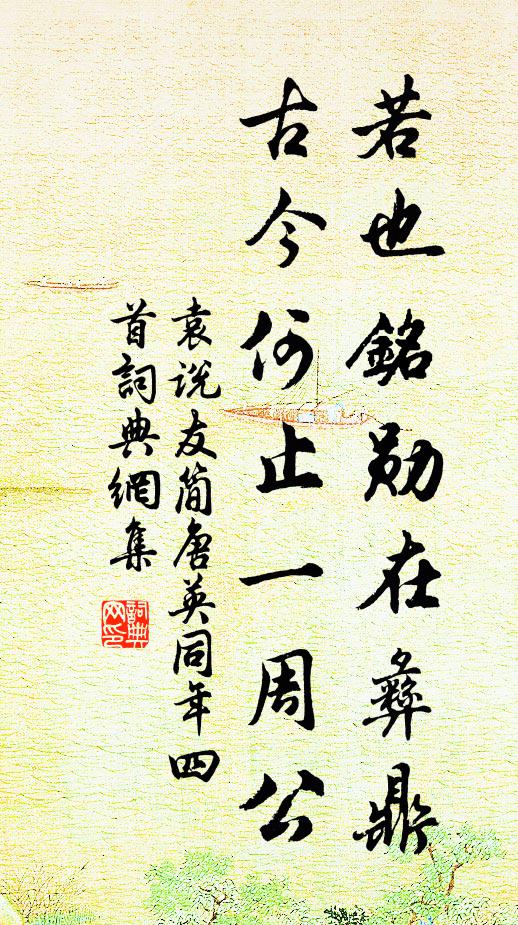 若也銘勋在彝鼎
古今何止一周公
袁说友简唐英同年四
首詞典網集
詞典
网印